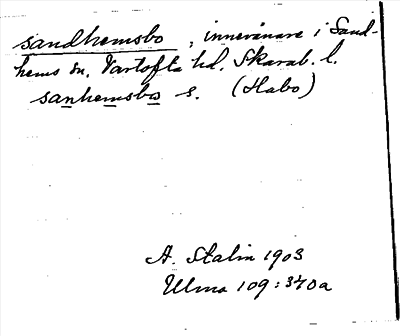 sandhemsbo, innevånare i Sand-
hems sn. Vartofta hd. Skarab. l.
sanhemsbos s. (Habo)
A. Stalin 1903
Ulma 109:370a